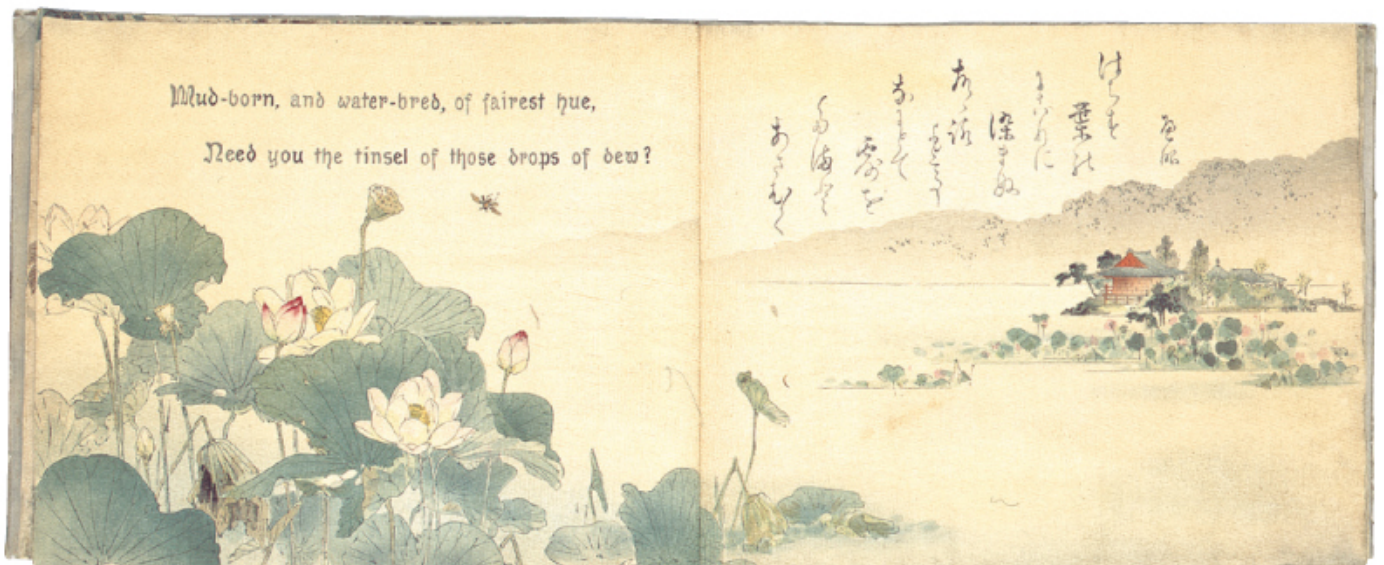 Mud-born, and water-bred, of fairest hue,
Need you the tinsel of those drops of dew?
はちす
葉の
にこりに
染まぬ
露を
あさむく